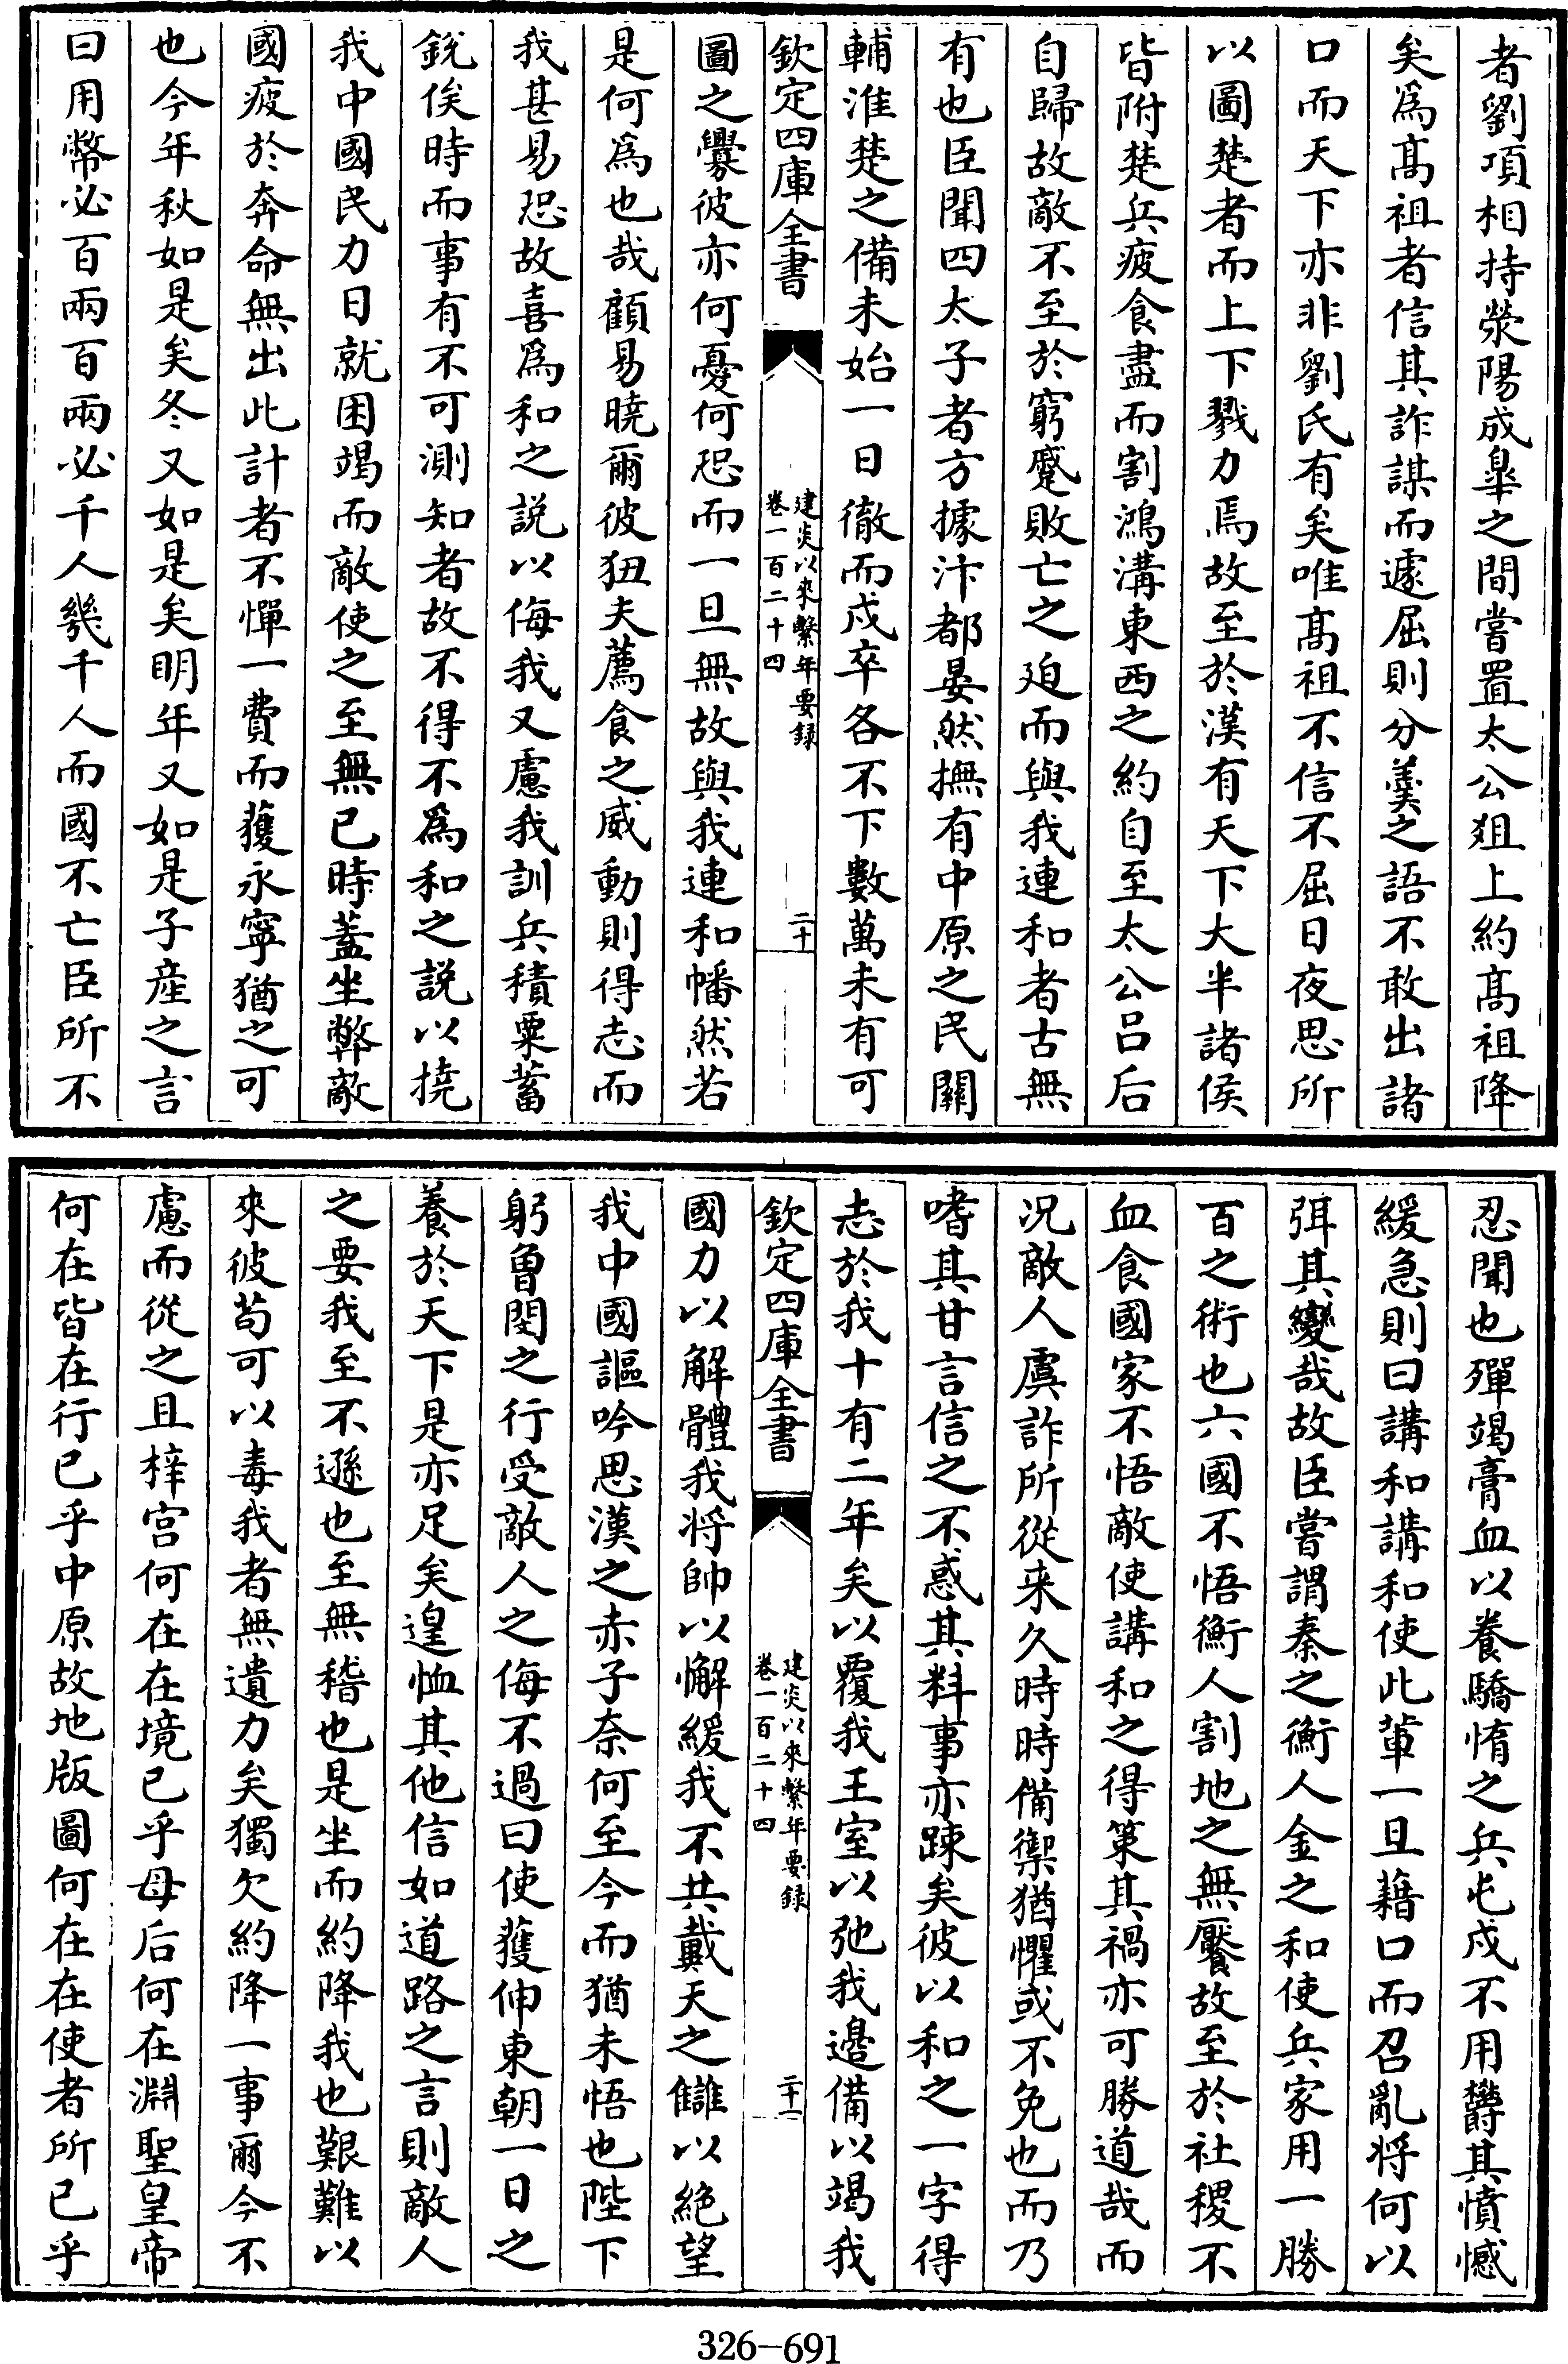 者劉項相持滎陽成臯之間嘗置太公俎上約髙祖降
矣爲髙祖者信其詐謀而遽屈則分羮之語不敢出諸
口而天下亦非劉氏有矣唯髙祖不信不屈日夜思所
以圖楚者而上下戮力焉故至於漢有天下大半諸侯
皆附楚兵疲食盡而割鴻溝東西之約自至太公吕后
自歸故敵不至於窮蹙敗亡之廹而與我連和者古無
有也臣聞四太子者方據汴都晏然撫有中原之民關
輔淮楚之備未始一日徹而戍卒各不下數萬未有可
欽定四庫全書
建炎以來繫年要録
卷一百二十四
二十
圖之釁彼亦何憂何恐而一旦無故與我連和幡然若
是何爲也哉顧易曉爾彼狃夫薦食之威動則得志而
我甚易恐故喜爲和之説以侮我又慮我訓兵積粟蓄
鋭俟時而事有不可測知者故不得不爲和之説以撓
我中國民力日就困竭而敵使之至無已時葢坐弊敵
國疲於奔命無出此計者不憚一費而獲永寧猶之可
也今年秋如是矣冬又如是矣明年又如是子産之言
曰用幣必百兩百兩必千人幾千人而國不亡臣所不
忍聞也殫竭膏血以養驕惰之兵屯戍不用欝其憤憾
緩急則曰講和講和使此軰一旦藉口而召亂将何以
弭其變哉故臣嘗謂秦之衡人金之和使兵家用一勝
百之術也六國不悟衡人割地之無饜故至於社稷不
血食國家不悟敵使講和之得策其禍亦可勝道哉而
况敵人虞詐所從来久時時備禦猶懼或不免也而乃
嗜其甘言信之不惑其料事亦踈矣彼以和之一字得
志於我十有二年矣以覆我王室以弛我邊備以竭我
欽定四庫全書
建炎以來繫年要録
卷一百二十四
二十一
國力以解體我将帥以懈緩我不共戴天之讎以絶望
我中國謳吟思漢之赤子奈何至今而猶未悟也陛下
躬曾閔之行受敵人之侮不過曰使獲伸東朝一日之
養於天下是亦足矣遑恤其他信如道路之言則敵人
之要我至不遜也至無稽也是坐而約降我也艱難以
來彼苟可以毒我者無遺力矣獨欠約降一事爾今不
慮而從之且梓宫何在在境已乎母后何在淵聖皇帝
何在皆在行已乎中原故地版圖何在在使者所已乎
326-691